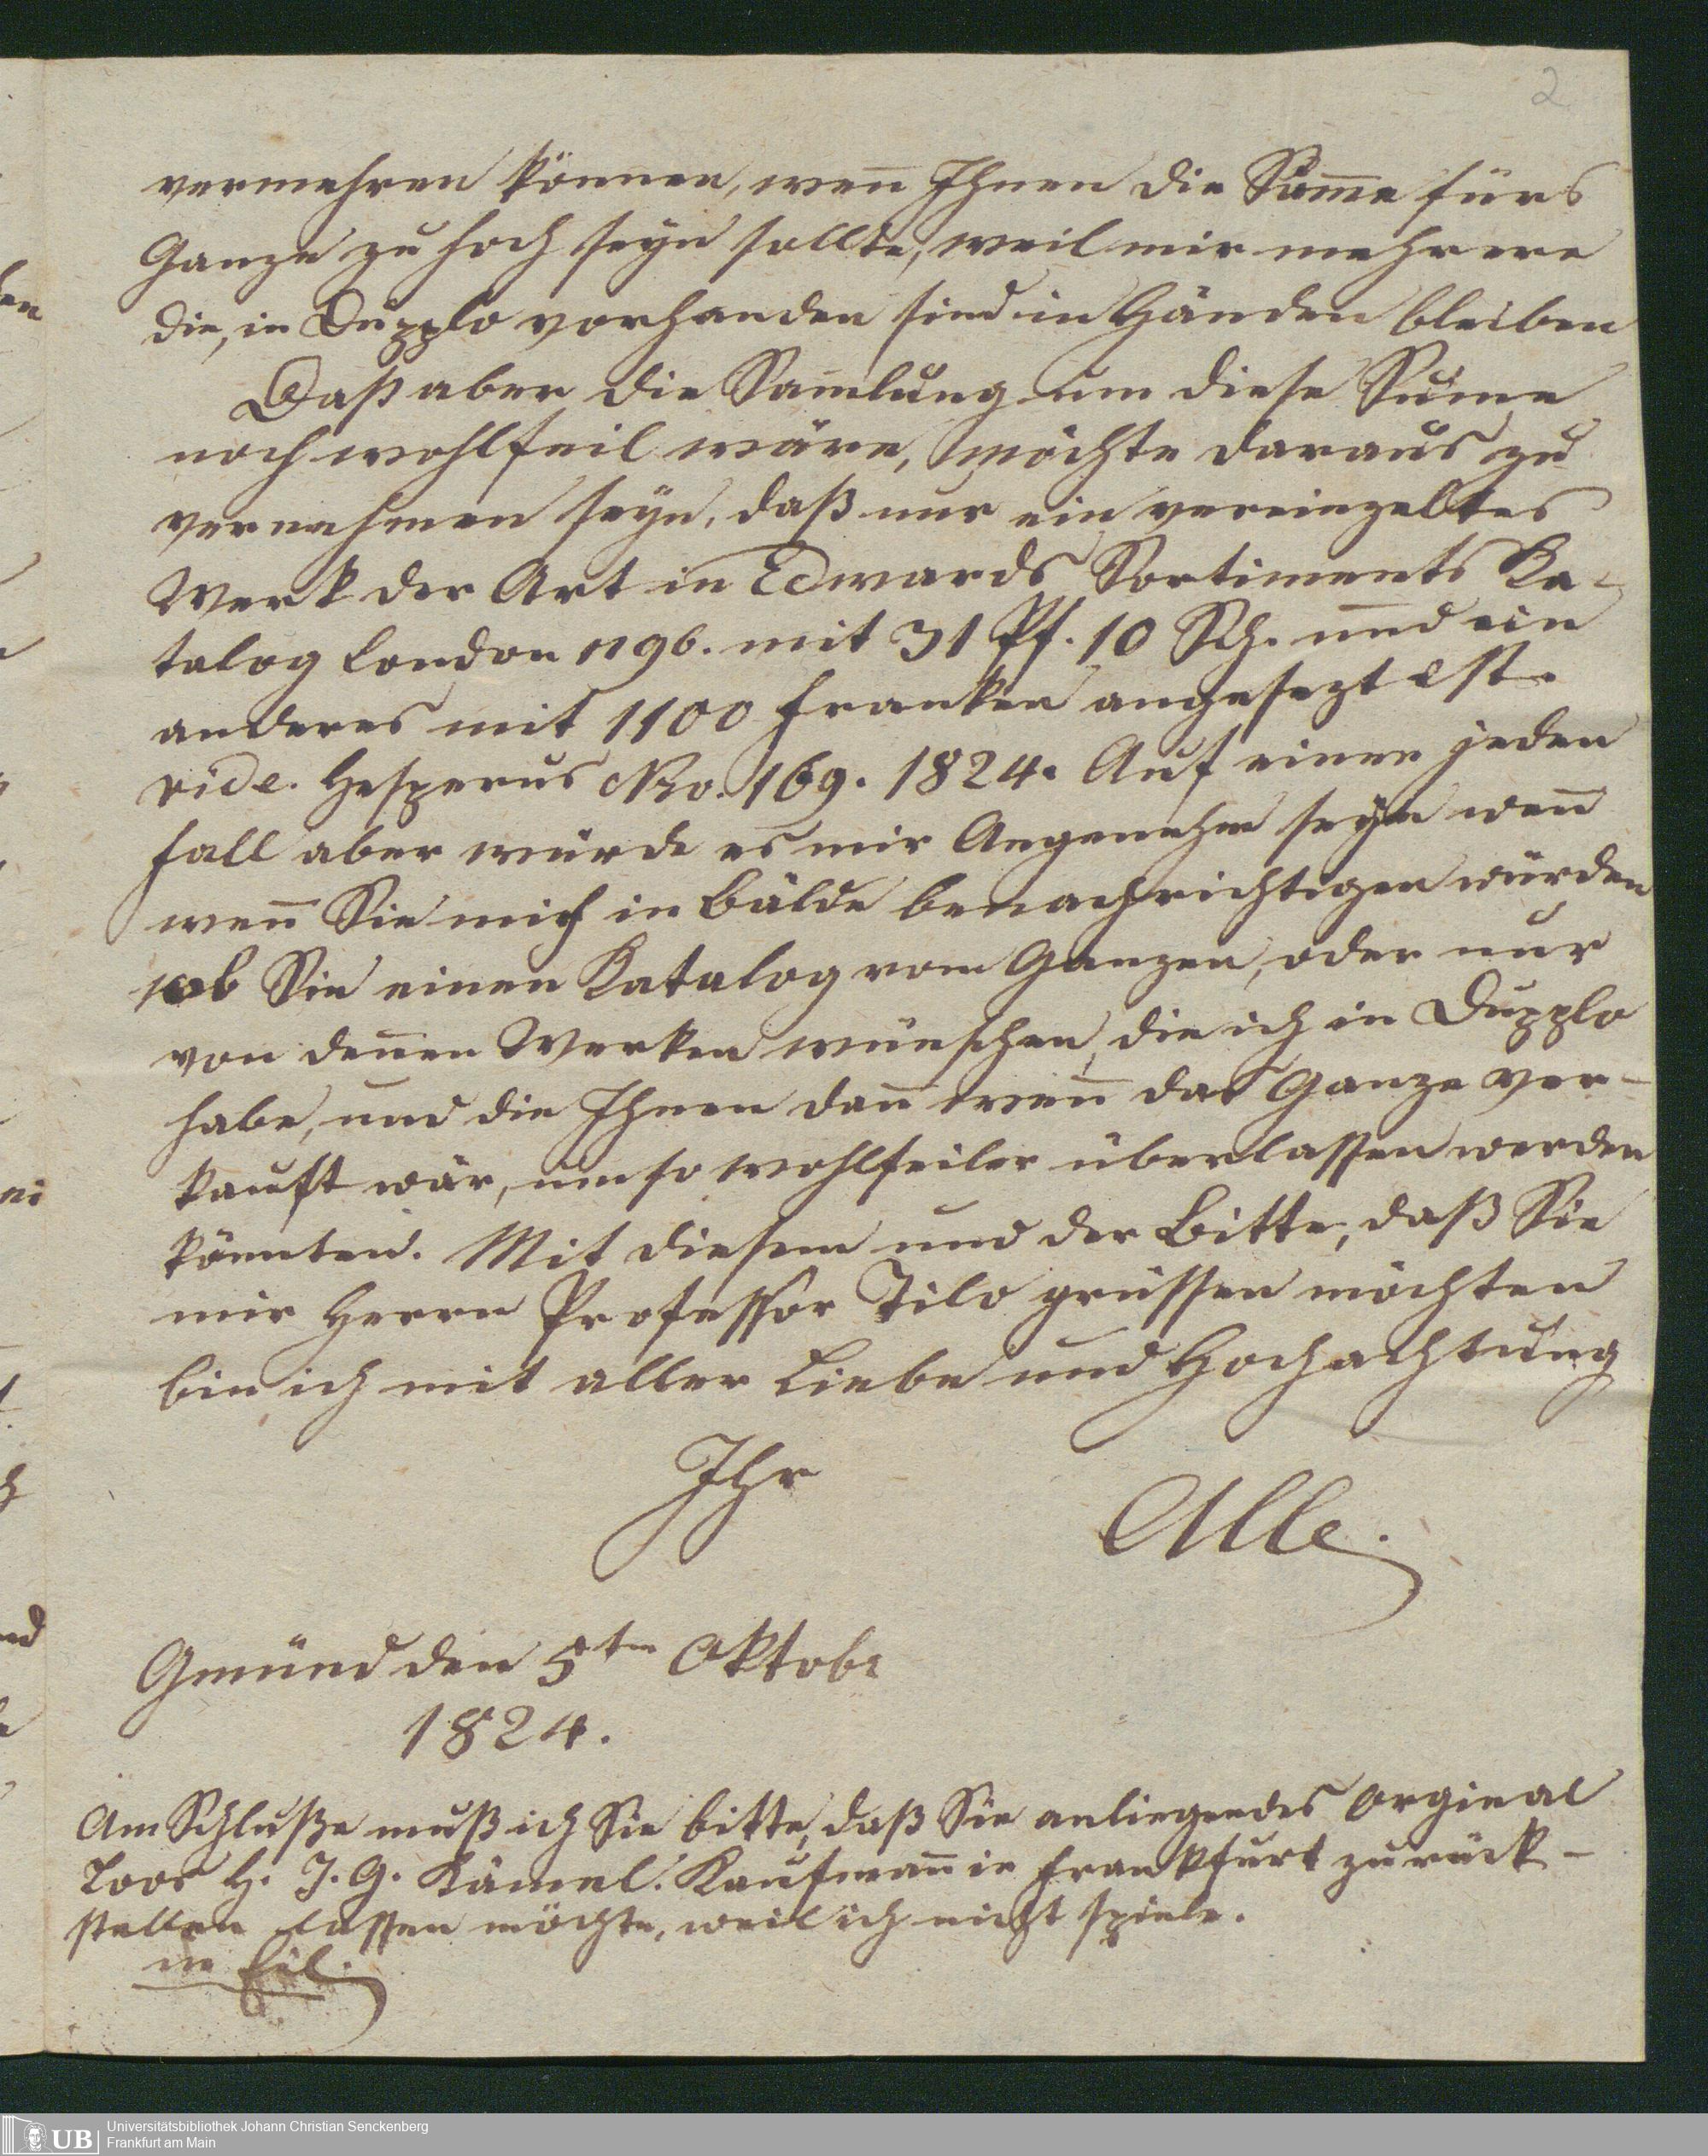 2
vermehren können, weñ Ihnen die Sum̄e fürs
Ganze zu hoch seyn sollte, weil mir mehrere
die, in Dupplo vorhanden sind in Händen bleiben
Daß aber die Sam̄lung um diese Sum̄e
noch wohlfeil wäre, möchte daraus zu
vernehmen seyn, daß nur ein vereinzeltes
Werk der Art in Edwards Sortiments Ka-
talog London 1796. mit 31 Pf. 10 Sch. und ein
anderes mit 1100 Franken angesezt ist.
vide. Hesperus Nro. 169. 1824. Auf einen jeden
Fall aber würde es mir Angenehm seyn weñ
weñ Sie mich in Bälde benachrichtigen würden
ob Sie einen Katalog vom Ganzen, oder nur
von deñen Werken wünschen, die ich in Dupplo
habe, und die Ihnen dañ weñ das Ganze ver-
kauft wär, um so wohlfeiler überlassen werden
könnten. Mit diesem und der Bitte, daß Sie
mir Herrn Professor Tilo grüssen möchten
bin ich mit aller Liebe und Hochachtung
Ihr
Alle.
Gmünd den 5ten Oktobr
1824.
Am Schluße muß ich Sie bitte, daß Sie anliegendes Orginal
Loos H. J. G. Kämel. Kaufmañ in Frankfurt zurück-
stellen lassen möchte, weil ich nicht spiele.
in Eil.
UB
Universitätsbibliothek Johann Christian Senckenberg
Frankfurt am Main